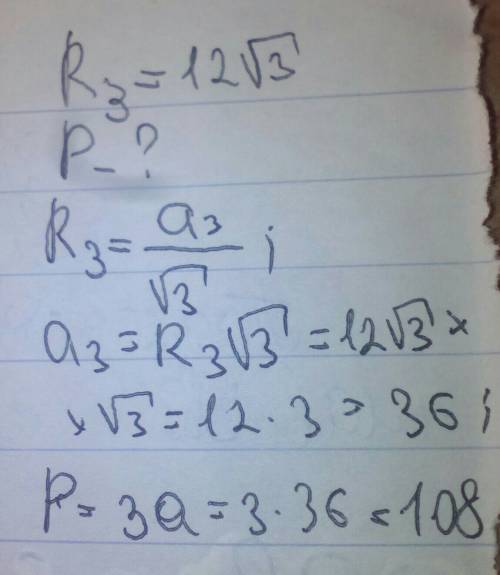 R₃ = 12√3
P - ?
R₃ = a₃/√3 ;
a₃ = R₃√3 = 12√3 ×
× √3 = 12 · 3 = 36 ;
P = 3a = 3 · 36 = 108